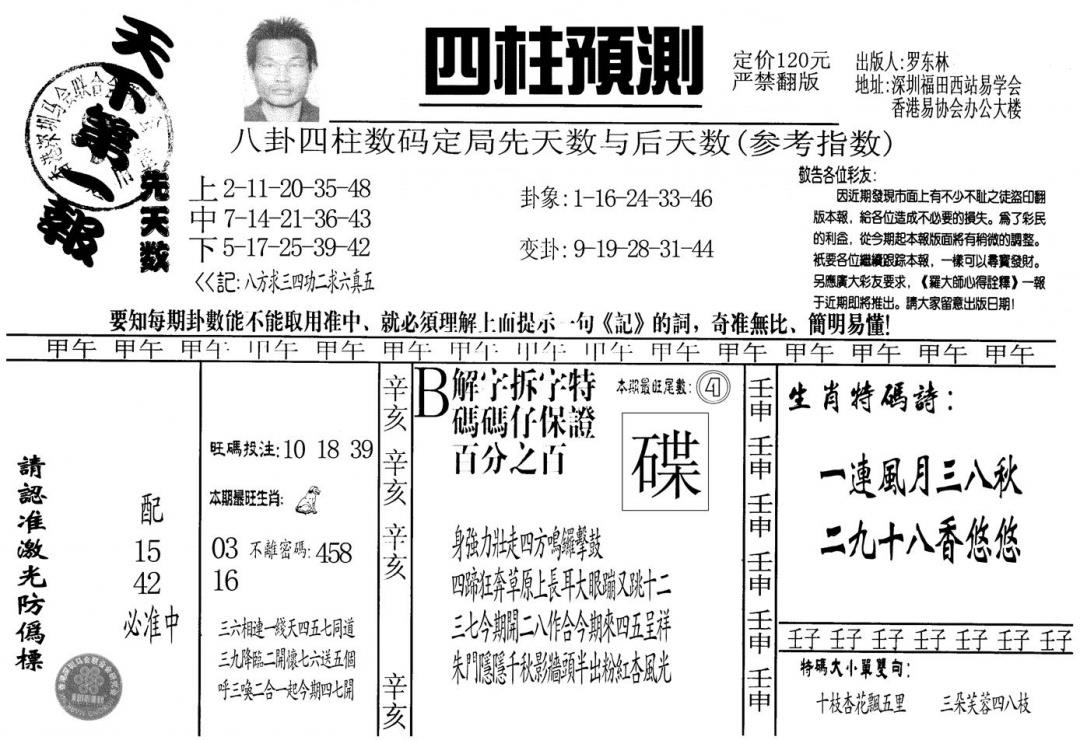 天下第一報
四柱預測
定价120元
严禁翻版
出版人:罗东林
地址:深圳福田西站易学会
香港易协会办公大楼
八卦四柱数码定局先天数与后天数(参考指数)
先天数
上2-11-20-35-48
中7-14-21-36-43
下5-17-25-39-42
<<記:八方求三四功二求六真五
卦象:1-16-24-33-46
变卦:9-19-28-31-44
敬告各位彩友:
因近期發現市面上有不少不耻之徒盜印翻
版本報,給各位造成不必要的損失。爲了彩民
的利益,從今期起本報版面將有稍微的調整。
衹要各位繼續跟踪本報,一樣可以尋寶發財。
另應廣大彩友要求,《羅大師心得詮釋》一報
于近期即將推出。請大家留意出版日期!
要知每期卦數能不能取用准中、就必須理解上面提示一句《記》的詞,奇准無比、簡明易懂!
甲午 甲午 甲午 甲午 甲午 甲午 甲午 甲午 甲午 甲午 甲午 甲午 甲午 甲午 甲午
請認准激光防僞標
配
15
42
必准中
旺碼投注:10 18 39
本期最旺生肖:
03 不離密碼:458
16
三六相連一綫天四五七同道
三九降臨二開懷七六送五個
呼三喚二合一起今期四七開
辛亥
辛亥
辛亥
辛亥
B解字拆字特
碼碼仔保證
百分之百
本期最旺尾數:④①
碟
身強力壯走四方鳴鑼擊鼓
四蹄狂奔草原上長耳大眼蹦又跳十二
三七今期開二八作合今期來四五呈祥
朱門隱隱千秋影牆頭半出粉紅杏風光
壬申
壬申
壬申
壬申
壬申
壬申
生肖特碼詩:
一連風月三八秋
二九十八香悠悠
壬子 壬子 壬子 壬子 壬子 壬子 壬子
特碼大小單雙句:
十枝杏花飄五里 三朵芙蓉四八枝